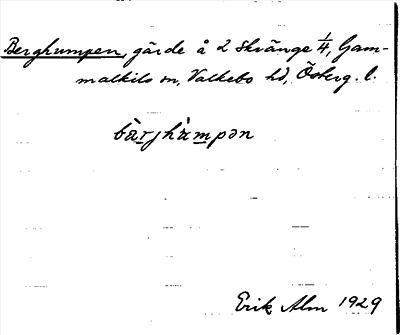 Berghumpen, gärde å 2 Skränge 1/4, Gam-
malkils sn, Valkebo hd, Österg. l.
bàrjhàmpən
Erik Alm 1929